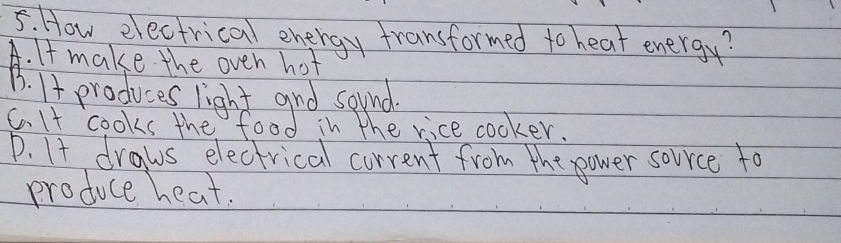 5. How electrical energy transformed to heat energy?
A. It make the oven hot
B. It produces light and sound.
C. It cooks the food in the rice cooker.
D. It draws electrical current from the power source to
produce heat.